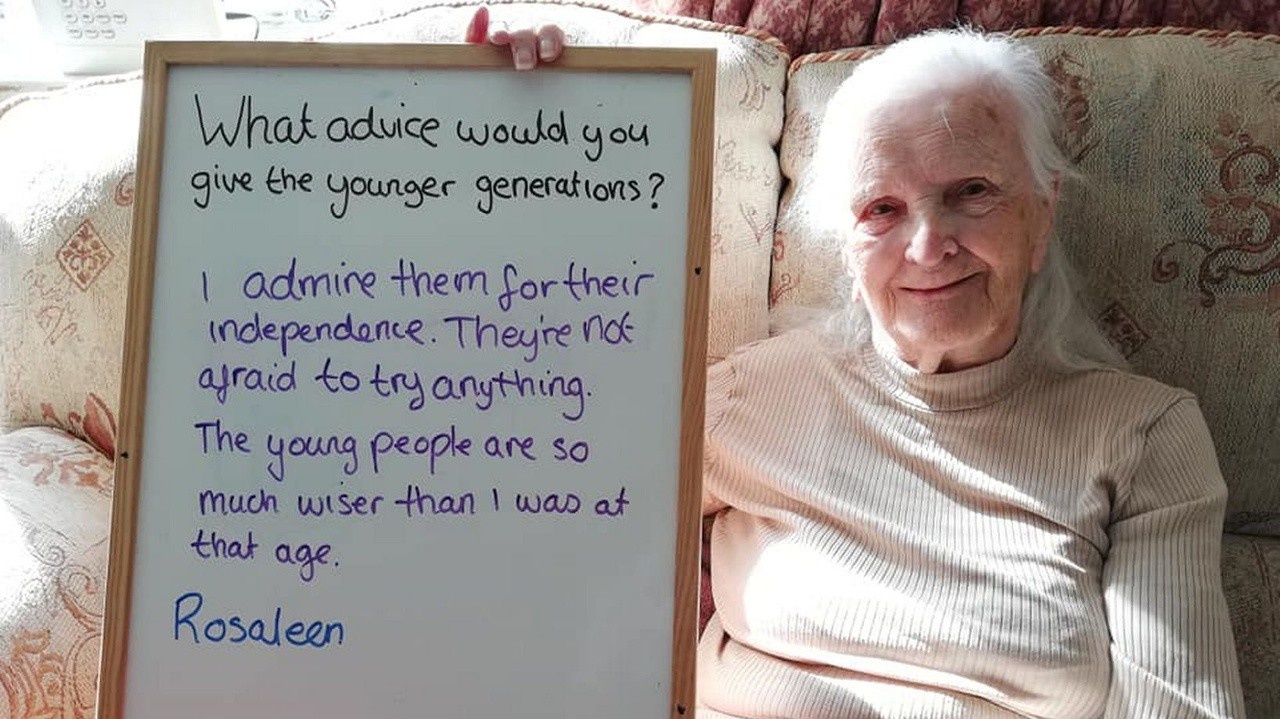 What advice would you
give the younger generations?
I admire them for their
independence. They're not
afraid to try anything.
The young people are so
much wiser than I was at
that age.
Rosaleen